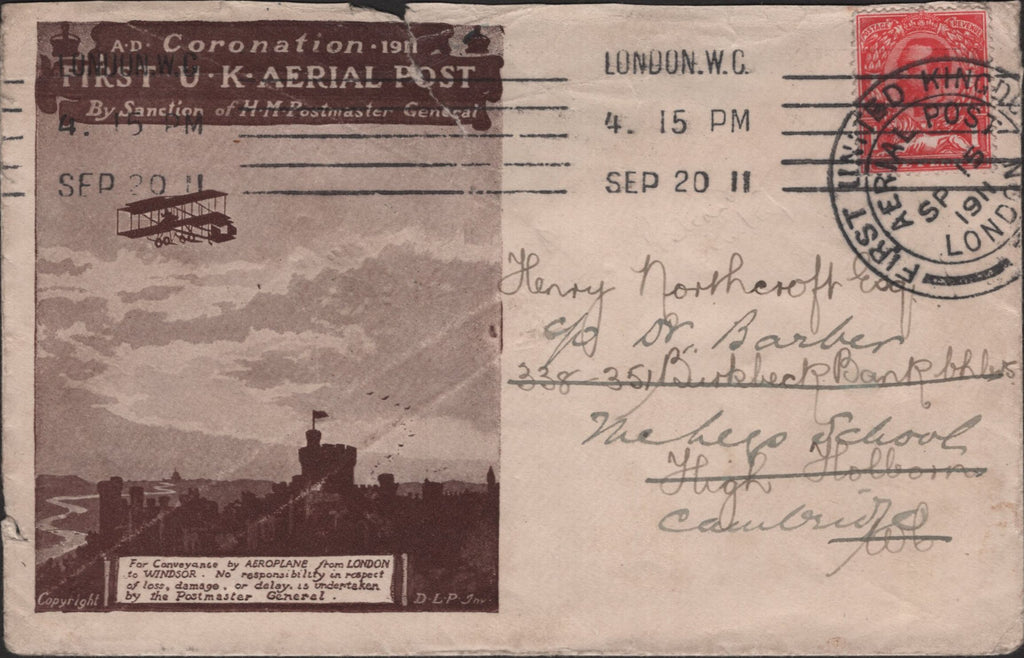 A·D· Coronation · 1911
FIRST · U · K · AERIAL POST
By Sanction of H·M·Postmaster General
LONDON.W.C.
4. 15 PM
SEP 20 11
LONDON.W.C.
4. 15 PM
SEP 20 11
POSTAGE REVENUE
FIRST UNITED KINGDOM
AERIAL POST
SP 15
1911
LONDON
Henry Northcroft Esq
c/o Dr. Barber
338-351 Birkbeck Bank
The Leys School
High Holborn
Cambridge
WC
For Conveyance by AEROPLANE from LONDON
to WINDSOR. No responsibility in respect
of loss, damage, or delay, is undertaken
by the Postmaster General.
Copyright
D·L·P·Inv.